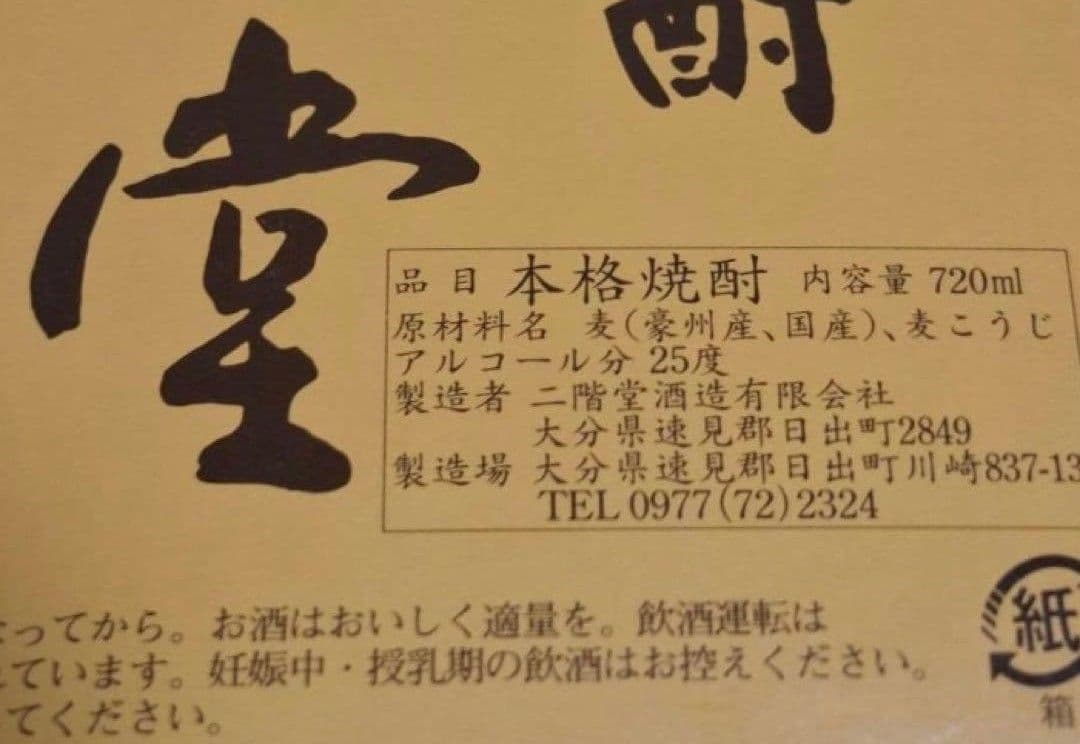 酎
堂
品目 本格焼酎 内容量 720ml
原材料名 麦(豪州産、国産)、麦こうじ
アルコール分 25度
製造者 二階堂酒造有限会社
大分県速見郡日出町2849
製造場 大分県速見郡日出町川崎837-13
TEL 0977(72)2324
なってから。お酒はおいしく適量を。飲酒運転は
れています。妊娠中・授乳期の飲酒はお控えください。
てください。
紙
箱